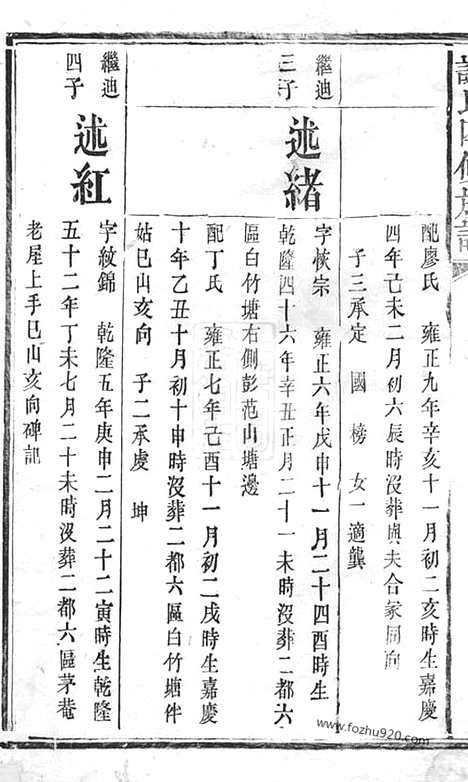 配廖氏 雍正九年辛亥十一月初二亥時生嘉慶
四年己未二月初六辰時沒葬與夫合冢同向
子三承定 國 榜 女一適龔
繼迪三子
述緒
字恢宗 雍正六年戊申十一月二十四酉時生
乾隆四十六年辛丑正月二十一未時沒葬二都六
區白竹塘右側彭范山塘邊
配丁氏 雍正七年己酉十一月初二戌時生嘉慶
十年乙丑十月初十申時沒葬二都六區白竹塘伴
姑巳山亥向 子二承虔 坤
繼迪四子
述紅
字紋錦 乾隆五年庚申二月二十二寅時生乾隆
五十二年丁未七月二十未時沒葬二都六區茅菴
老屋上手巳山亥向碑記
www.fozhu920.com